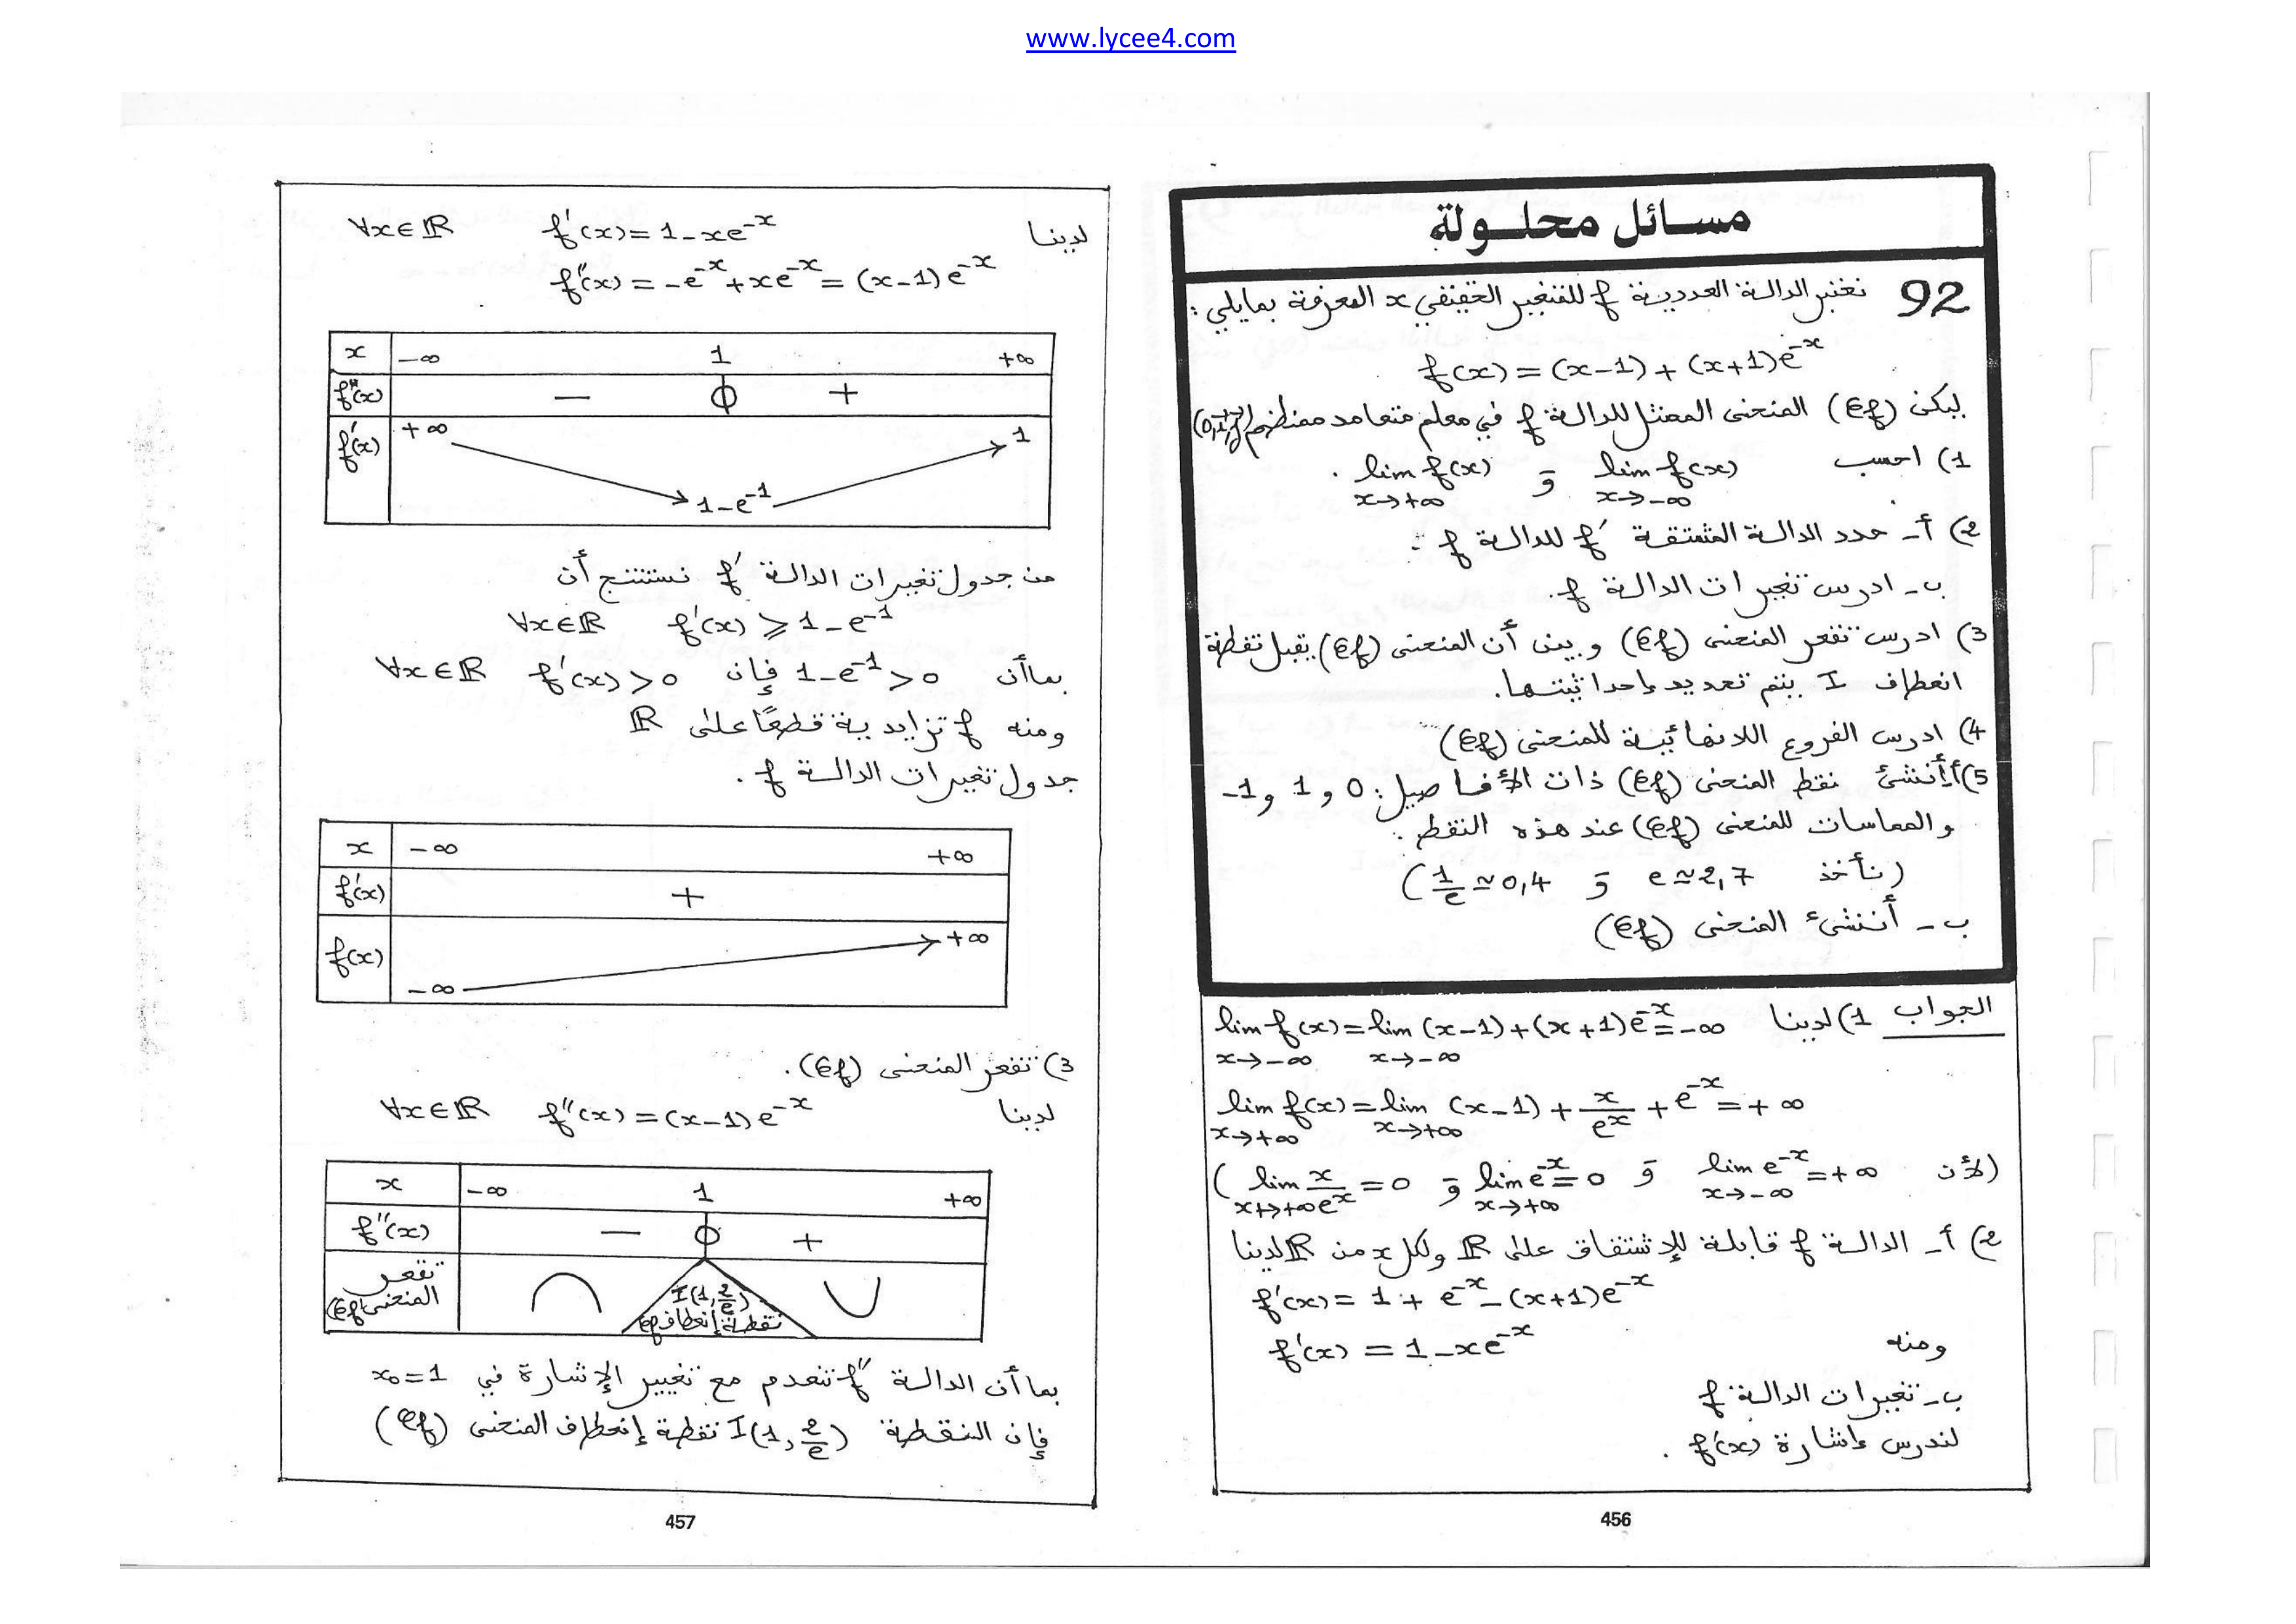 www.lycee4.com
مسائل محلولة
92 نعتبر الدالة العددية f للمتغير الحقيقي x المعرفة بمايلي :
f(x) = (x-1) + (x+1)e^{-x}
ليكن (𝒞f) المنحنى الممثل للدالة f في معلم متعامد ممنظم (0,i⃗,j⃗)
1) احسب lim_{x→-∞} f(x) و lim_{x→+∞} f(x) .
2) أ- حدد الدالة المشتقة f' للدالة f :
ب- ادرس تغيرات الدالة f.
3) ادرس تقعر المنحنى (𝒞f) وبين أن المنحنى (𝒞f) يقبل نقطة
انعطاف I يتم تحديد إحداثيتها.
4) ادرس الفروع اللانهائية للمنحنى (𝒞f)
5) أ- أنشئ نقط المنحنى (𝒞f) ذات الأفاصيل: 0 و 1 و -1
والمماسات للمنحنى (𝒞f) عند هذه النقط .
(نأخذ e ≃ 2,7 و 1/e ≃ 0,4)
ب- أنشئ المنحنى (𝒞f)
الجواب 1) لدينا lim_{x→-∞} f(x) = lim_{x→-∞} (x-1) + (x+1)e^{-x} = -∞
lim_{x→+∞} f(x) = lim_{x→+∞} (x-1) + x/e^x + e^{-x} = +∞
(لأن lim_{x→-∞} e^{-x} = +∞ و lim_{x→+∞} e^{-x} = 0 و lim_{x→+∞} x/e^x = 0)
2) أ- الدالة f قابلة للإشتقاق على ℝ ولكل x من ℝ لدينا
f'(x) = 1 + e^{-x} - (x+1)e^{-x}
ومنه f'(x) = 1 - xe^{-x}
ب- تغيرات الدالة f
لندرس إشارة f'(x) .
456
لدينا f'(x) = 1 - xe^{-x} ∀x∈ℝ
f''(x) = -e^{-x} + xe^{-x} = (x-1)e^{-x}
x -∞ 1 +∞
f''(x) - 0 +
f'(x) +∞ 1-e^{-1} 1
من جدول تغيرات الدالة f' نستنتج أن
∀x∈ℝ f'(x) ⩾ 1-e^{-1}
بما أن 1-e^{-1} > 0 فإن f'(x) > 0 ∀x∈ℝ
ومنه f تزايدية قطعًا على ℝ
جدول تغيرات الدالة f .
x -∞ +∞
f'(x) +
f(x) -∞ +∞
3) تقعر المنحنى (𝒞f).
لدينا f''(x) = (x-1)e^{-x} ∀x∈ℝ
x -∞ 1 +∞
f''(x) - 0 +
تقعر
المنحنى (𝒞f)
I(1, 2/e)
نقطة إنعطاف 𝒞f
بما أن الدالة f'' تنعدم مع تغيير الإشارة في x₀=1
فإن النقطة I(1, 2/e) نقطة إنعطاف المنحنى (𝒞f)
457